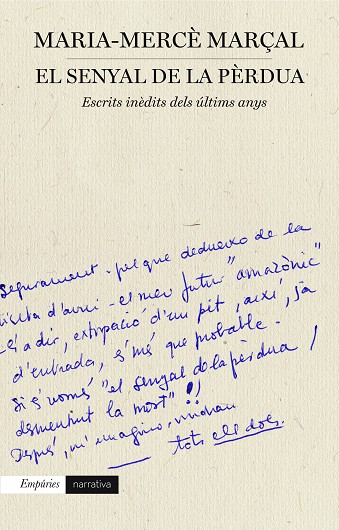 MARIA-MERCÈ MARÇAL
EL SENYAL DE LA PÈRDUA
Escrits inèdits dels últims anys
Segurament - pel que dedueixo de la
visita d'avui - el meu futur "amazònic"
- és a dir, extirpació d'un pit, així, ja
d'entrada, és més que probable.
Si és només "el senyal de la pèrdua /
desmentint la mort"!!
Després, m'imagino, vindran
tots els dols.
Empúries
narrativa